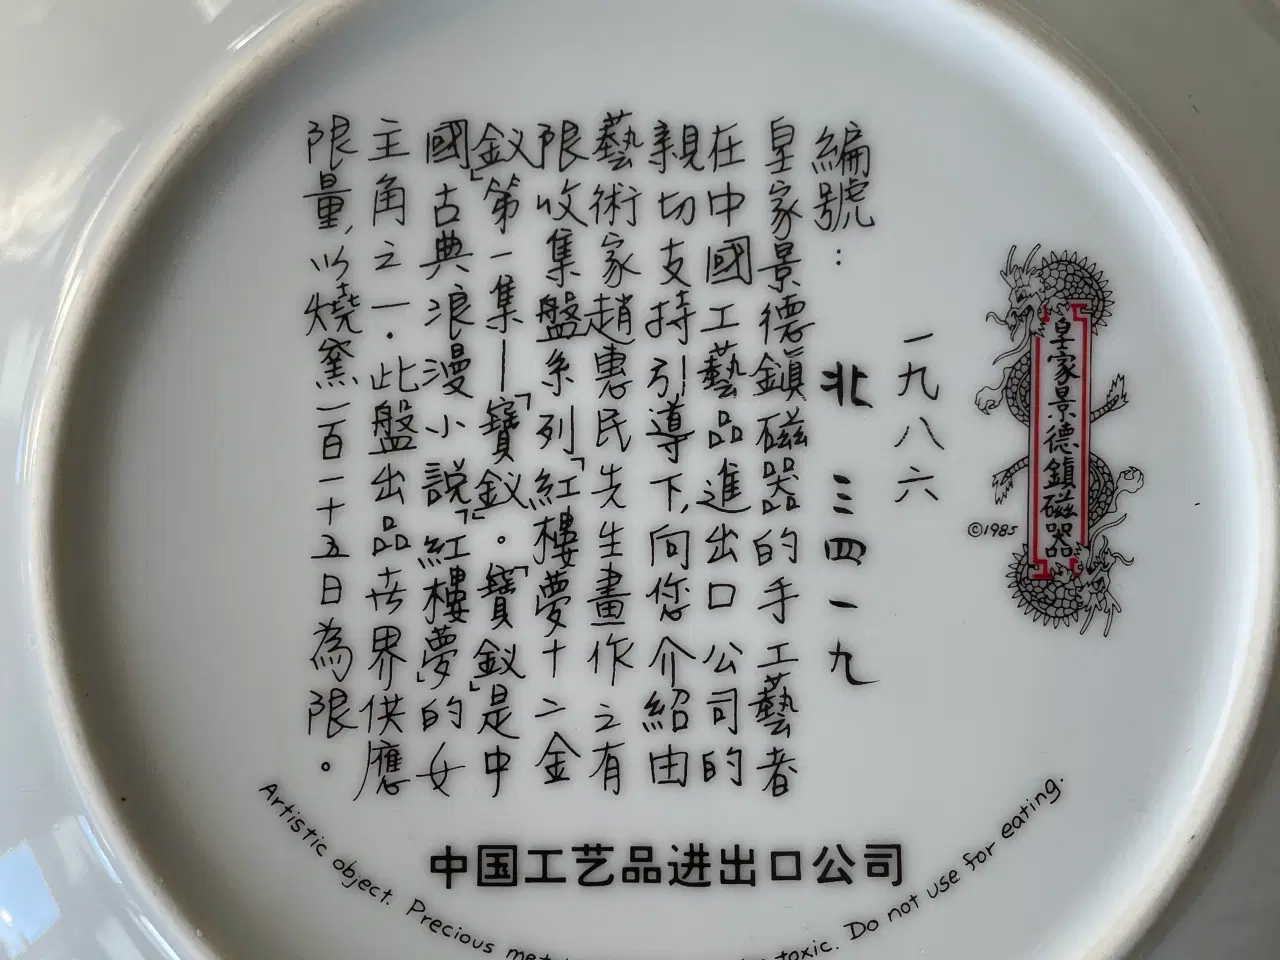 皇家景德鎮磁器
©1985
一九八六
編號: 北三四一九
皇家景德鎮磁器的手工藝者
在中國工藝品進出口公司的
親切支持引導下,向您介紹由
藝術家趙惠民先生畫作之有
限收集盤系列「紅樓夢十二金
釵」第一集—「寶釵」。「寶釵」是中
國古典浪漫小說「紅樓夢」的女
主角之一.此盤出品世界供應
限量,以燒窯一百一十五日為限。
中国工艺品进出口公司
Artistic object. Precious toxic. Do not use for eating.